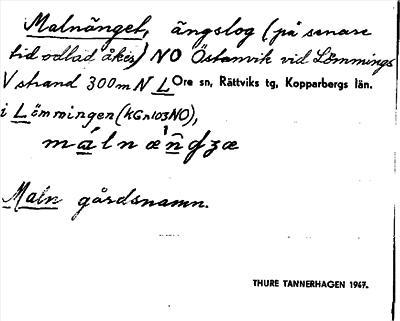 Malnänget, ängslog (på senare
tid odlad åker) NO Östanvik vid Lömmings
V strand 300 m N L Ore sn, Rättviks tg, Kopparbergs län.
i Lömmingen (KGn103NO),
Maln gårdsnamn.
THURE TANNERHAGEN 1947.